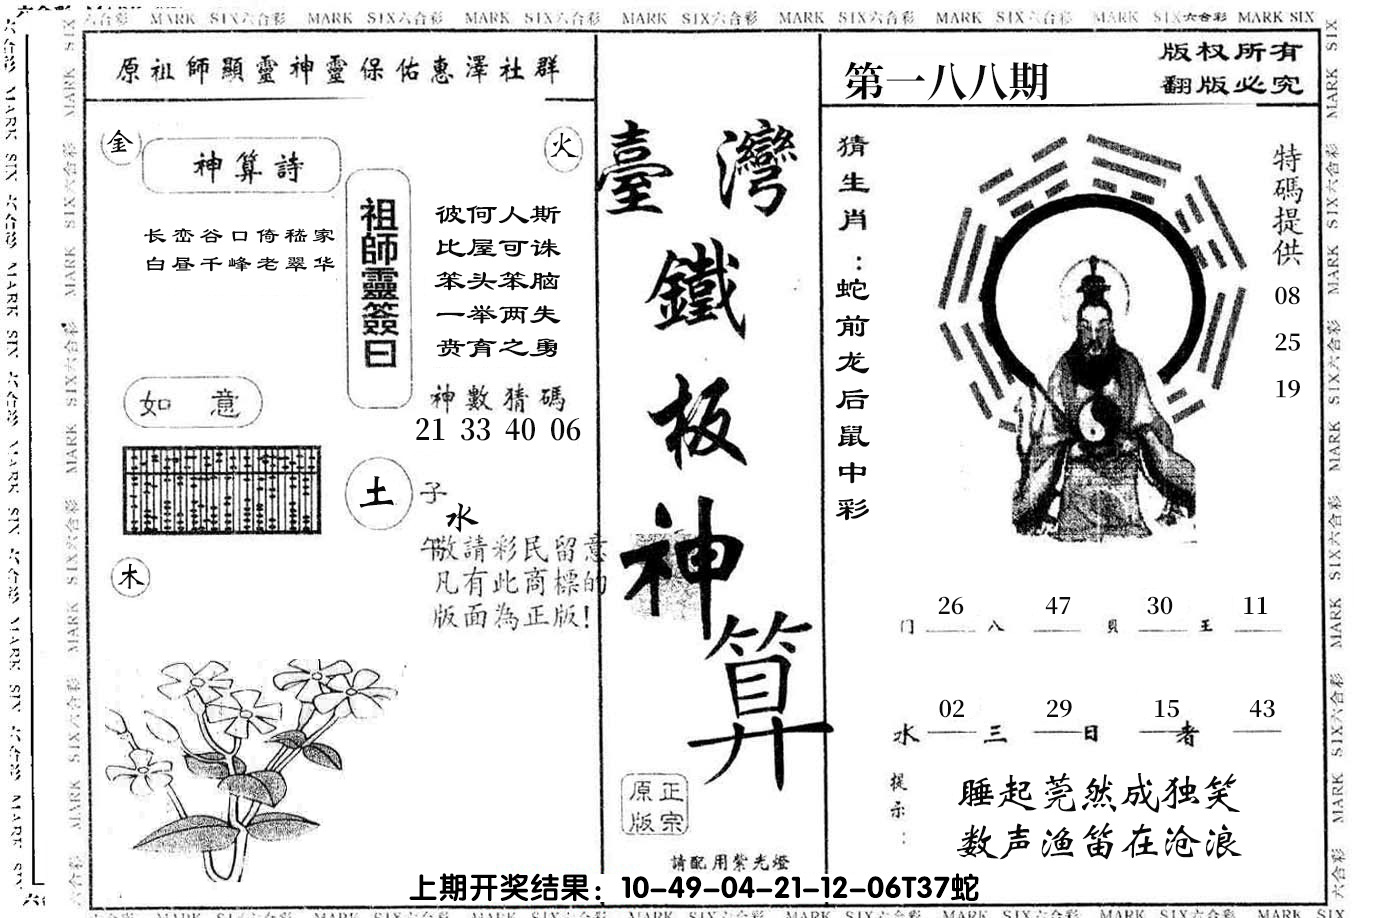 六合彩 MARK SIX六合彩 MARK SIX六合彩 MARK SIX六合彩 MARK SIX六合彩 MARK SIX六合彩 MARK SIX六合彩 MARK SIX六合彩 MARK SIX
原祖師顯靈神靈保佑惠澤社群
金
火
神算詩
长峦谷口倚嵇家
白昼千峰老翠华
祖師靈簽曰
彼何人斯
比屋可诛
笨头笨脑
一举两失
贲育之勇
神數猜碼
21 33 40 06
如意
土
子
水
午
木
敬請彩民留意
凡有此商標的
版面為正版!
臺灣
鐵板神算
原正
版宗
請配用紫光燈
第一八八期
版权所有
翻版必究
猜生肖:蛇前龙后鼠中彩
特碼提供
08
25
19
26 47 30 11
门 八 貝 王
02 29 15 43
水 三 日 者
提示:
睡起莞然成独笑
数声渔笛在沧浪
上期开奖结果：10-49-04-21-12-06T37蛇